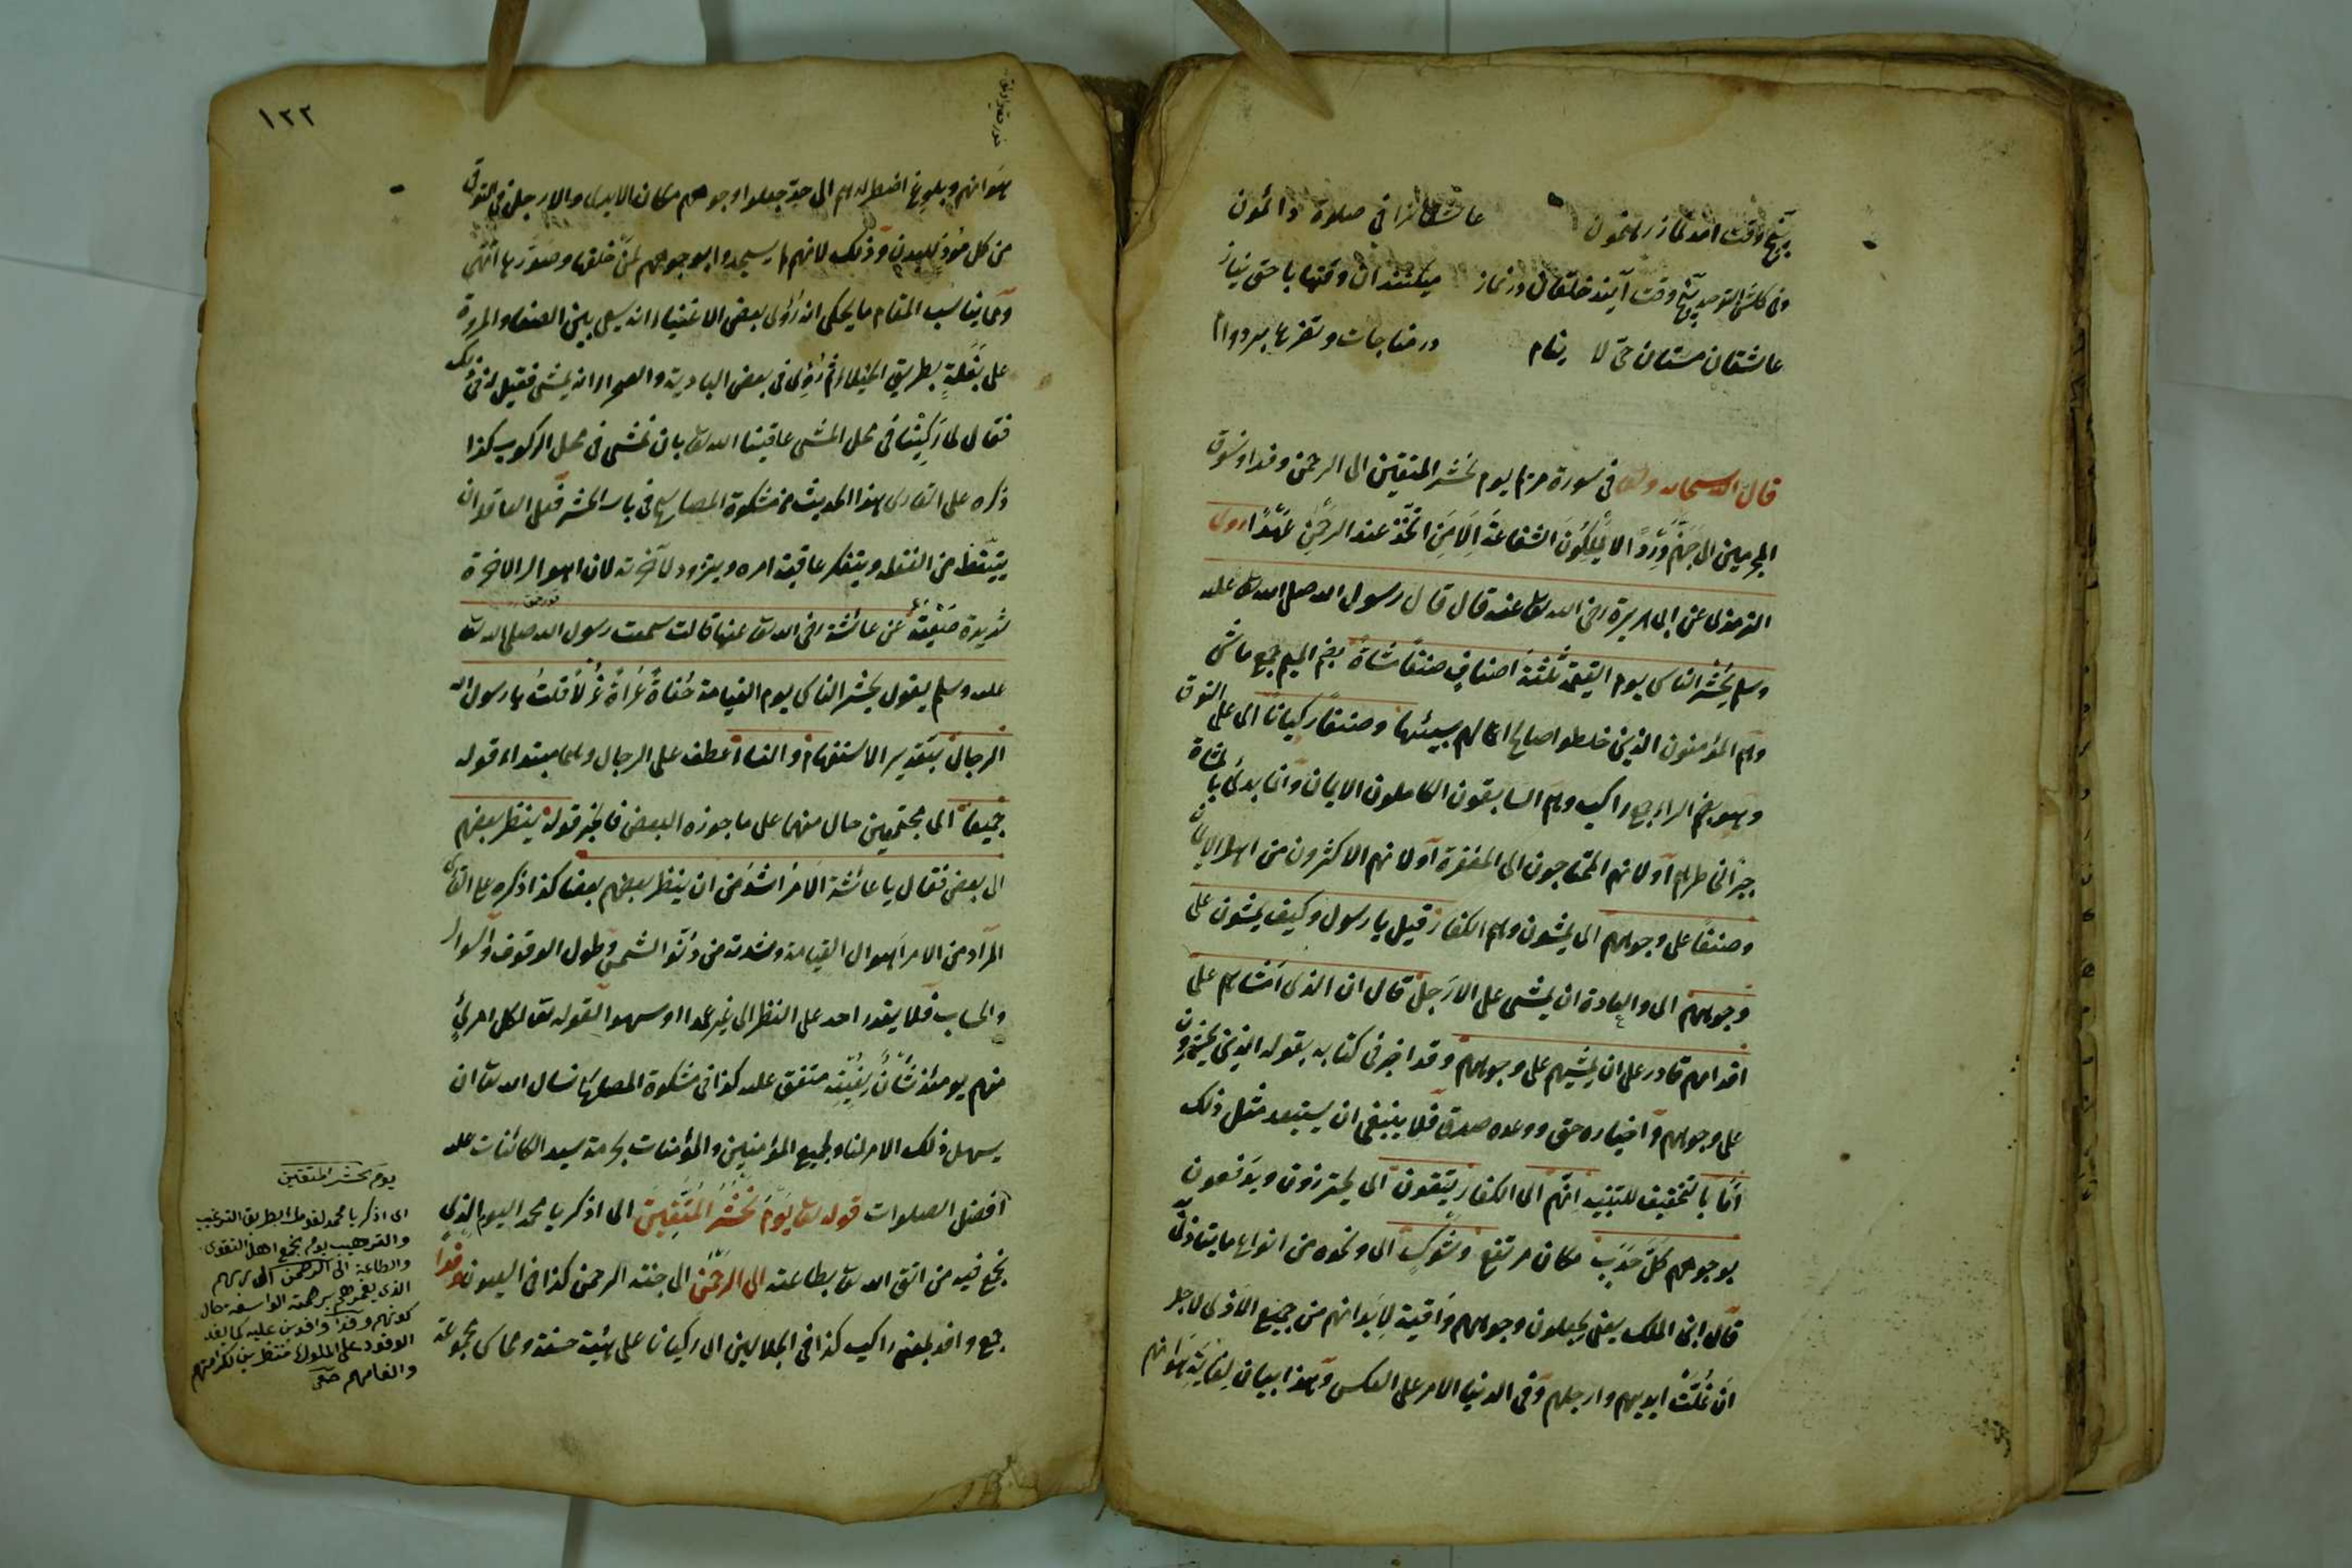 پنج وقت آمد نماز رهنمون عاشقانرا فی صلوة دائمون
وفی کلشن التوحید پنج وقت آیند خلقان در نماز میکنند آن وقتها با حق نیاز
عاشقان مستان حی لا ینام در مناجات و تضرع بر دوام
قال الله سبحانه وتعالى فی سورة مریم یوم نحشر المتقین الى الرحمن وفدا ونسوق
المجرمین الى جهنم وردا لا یملکون الشفاعة الا من اتخذ عند الرحمن عهدا روى
الترمذی عن ابی هریرة رضی الله تعالى عنه قال قال رسول الله صلى الله تعالى علیه
وسلم یحشر الناس یوم القیمة ثلثة اصناف صنفا مشاة بضم المیم جمع ماشی
وهم المؤمنون الذین خلطوا صالح اعمالهم بسیئها وصنفا رکبانا ای على النوق
وهو بضم الراء جمع راکب وهم السابقون الکاملون الایمان وانما بدئ بالمشاة
جبرا لخاطرهم او لانهم المحتاجون الى المغفرة او لانهم الاکثرون من اهل الایمان
وصنفا على وجوههم ای یمشون وهم الکفار قیل یا رسول وکیف یمشون على
وجوههم ای والعادة ان یمشى على الارجل قال ان الذی امشاهم على
اقدامهم قادر على ان یمشیهم على وجوههم وقد اخبر فی کتابه بقوله الذین یحشرون
على وجوههم واخباره حق ووعده صدق فلا ینبغی ان یستبعد مثل ذلک
اما بالتخفیف للتنبیه انهم ای الکفار یتقون ای یحترزون ویدفعون
بوجوههم کل حدب مکان مرتفع وشوک ای ونحوه من انواع ما یتأذى به
قال ابن الملک یعنی یجعلون وجوههم واقیة لابدانهم من جمیع الاذى لاجل
ان غلت ایدیهم وارجلهم وفی الدنیا الامر على العکس وهذا بیان لغایة هوانهم
١٢٢
هوانهم وبلوغ اضطرارهم الى حد جعلوا وجوههم مکان الایدی والارجل فی التوقی
من کل مؤذ للبدن وذلک لانهم لم یسجدوا بوجوههم لمن خلقها وصورها انتهى
ومما یناسب المقام ما یحکى انه رؤی بعض الاغنیاء انه یسعى بین الصفا والمروة
على بغلة بطریق الخیلاء ثم رؤی فی بعض البادیة والصحراء انه یمشی فقیل له فی ذلک
فقال لما رکبنا فی محل المشی عاقبنا الله تعالى بان نمشی فی محل الرکوب کذا
ذکره على القاری هذا الحدیث من مشکوة المصابیح فی باب الحشر فعلى العاقل ان
یتیقظ من الغفلة ویتفکر عاقبة امره ویتزود لآخرته لان اهوال الاخرة
شدیدة صعبة عن عائشة رضی الله تعالى عنها قالت سمعت رسول الله صلى الله تعالى
علیه وسلم یقول یحشر الناس یوم القیامة حفاة عراة غرلا قلت یا رسول الله
الرجال بتقدیر الاستفهام والنساء عطف على الرجال وهما مبتداء قوله
جمیعا ای مجتمعین حال منهما على ما جوزه البعض فالخبر قوله ینظر بعضهم
الى بعض فقال یا عائشة الامر اشد من ان ینظر بعضهم بعضا کذا ذکره على القاری
المراد من الامر اهوال القیامة وشدته من دنو الشمس وطول الوقوف والسؤال
والحساب فلا یقدر احد على النظر الى غیره عمدا او سهوا لقوله تعالى لکل امرئ
منهم یومئذ شأن یغنیه متفق علیه کذا فی مشکوة المصابیح نسال الله تعالى ان
یسهل ذلک الامر لنا ولجمیع المؤمنین والمؤمنات بحرمة سید الکائنات علیه
افضل الصلوات قوله تعالى یوم نحشر المتقین ای اذکر یا محمد الیوم الذی
یجمع فیه من اتقى الله تعالى بطاعته الى الرحمن ای جنة الرحمن کذا فی العیون وفدا
جمع وافد بمعنى راکب کذا فی الجلالین ای رکبانا على هیئة حسنة
یوم نحشر المتقین
ای اذکر یا محمد لقومک بطریق الترغیب
والترهیب یوم نجمع اهل التقوى
والطاعة الى الرحمن الى ربهم
الذی یغمرهم برحمته الواسعة حال
کونهم وفدا وافدین علیه کما یفد
الوفود على الملوک منتظرین لکرامتهم
وانعامهم